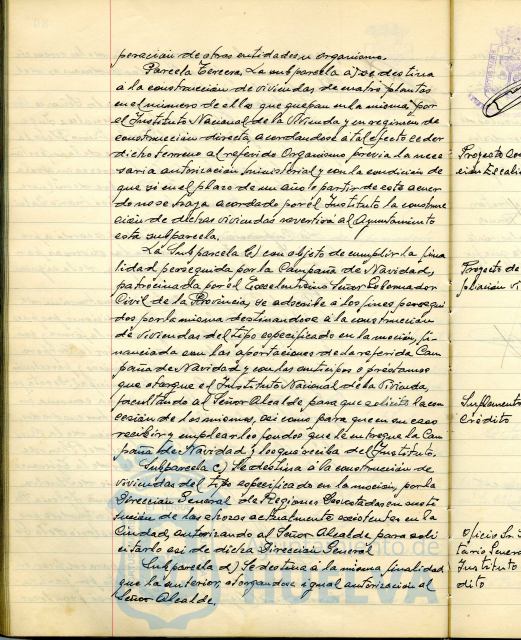 peración de otras entidades u organismo.
Parcela Tercera. La subparcela a) se destina
á la construcción de viviendas de cuatro plantas
en el número de ellas que quepan en la misma, por
el Instituto Nacional de la Vivienda y en régimen de
construcción directa, acordándose á tal efecto ceder
dicho terreno al referido Organismo, previa la nece
saria autorización ministerial y con la condición de
que si en el plazo de un año a partir de este acuer
do no se haya acordado por el Instituto la construc
ción de dichas viviendas revertirá al Ayuntamiento
esta subparcela.
La Subparcela b) con objeto de cumplir la fina
lidad perseguida por la Campaña de Navidad,
patrocinada por el Excelentísimo Señor Gobernador
Civil de la Provincia, se adscribe á los fines persegui
dos por la misma destinandose á la construcción
de viviendas del tipo especificado en la moción, fi-
nanciada con las aportaciones de la referida Cam
paña de Navidad y con los anticipos o préstamos
que otorgue el Instituto Nacional de la Vivienda,
facultando al Señor Alcalde para que solicite la con
cesión de los mismos, así como para que en su caso
reciba y emplear los fondos que le entregue la Cam
paña de Navidad y los que reciba del Instituto.
Subparcela c) Se destina á la construcción de
viviendas del tipo especificado en la moción, por la
Dirección General de Regiones Devastadas en susti
tución de las chozas actualmente existentes en la
Ciudad, autorizando al Señor Alcalde para soli
citarlo así de dicha Dirección General
Subparcela d) Se destina á la misma finalidad
que la anterior, otorgandose igual autorización al
Señor Alcalde.
Proyecto
Proyecto de
Suplemento
Crédito
Oficio Sr.
tario General
Instituto
dito
Ayuntamiento de
HUELVA